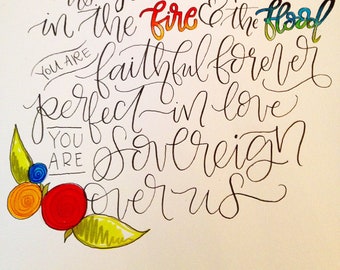 in the fire & the flood
YOU ARE faithful forever
perfect in love
YOU ARE Sovereign
over us